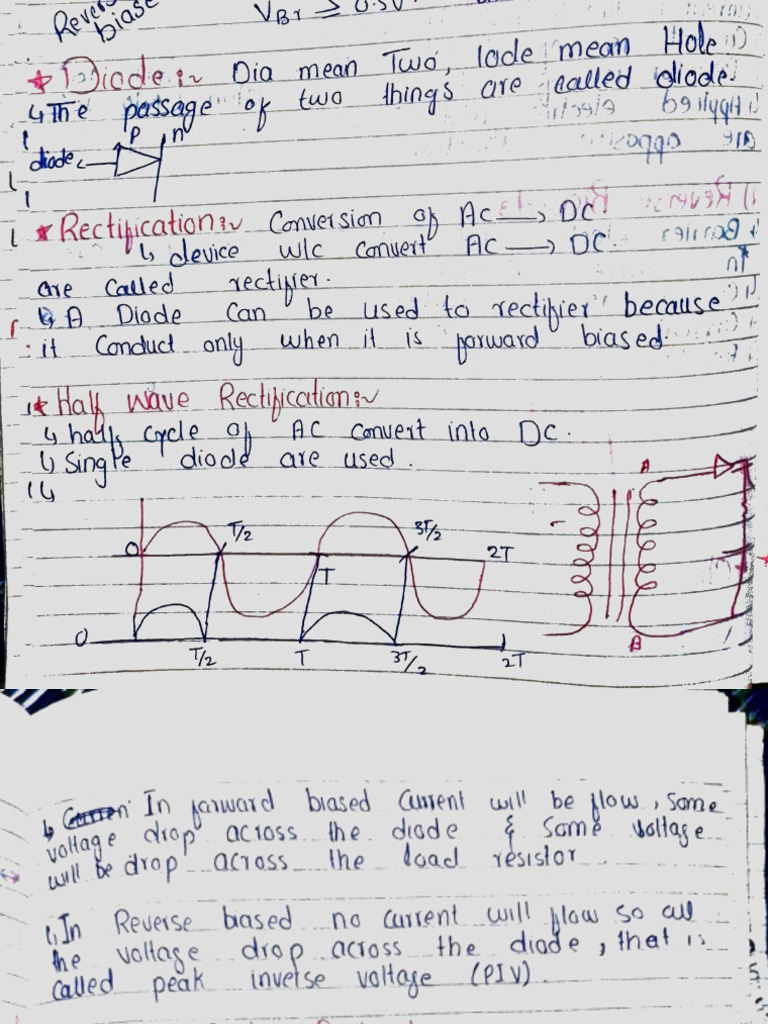 Reverse
biase
VBr ≥ 0.5V
* Diode:~ Dia mean Two, lode mean Hole
↳ The passage of two things are called diode.
P n
diode
* Rectification:~ Conversion of AC → DC
↳ device w/c convert AC → DC.
are called rectifier.
↳ A Diode Can be used to rectifier because
it Conduct only when it is forward biased.
* Half Wave Rectification:~
↳ half cycle of AC convert into DC.
↳ Single diode are used.
↳
A
0 T/2 T 3T/2 2T
0 T/2 T 3T/2 2T
B
↳ In forward biased Current will be flow, Some
voltage drop across the diode & Some voltage
will be drop across the load resistor
↳ In Reverse biased no current will flow so all
the voltage drop across the diode, that is
called peak inverse voltage (PIV).